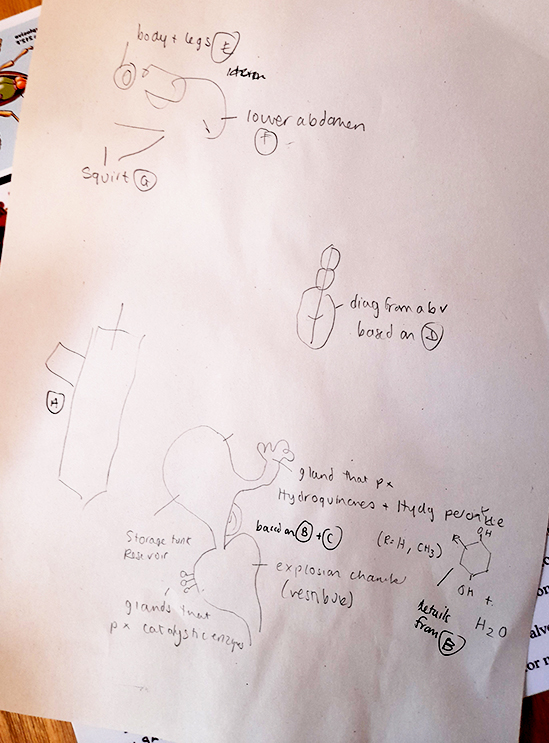 body + legs E
lower abdomen
F
squirt G
diag from abv
based on D
A
gland that px
Hydroquinones + Hydy peroxide
based on B + C
(R=H, CH3)
R
OH
OH
+
H2O
Storage
Reservoir
explosion chamber
(vestibule)
glands that
px catalystic enzymes
details
from B